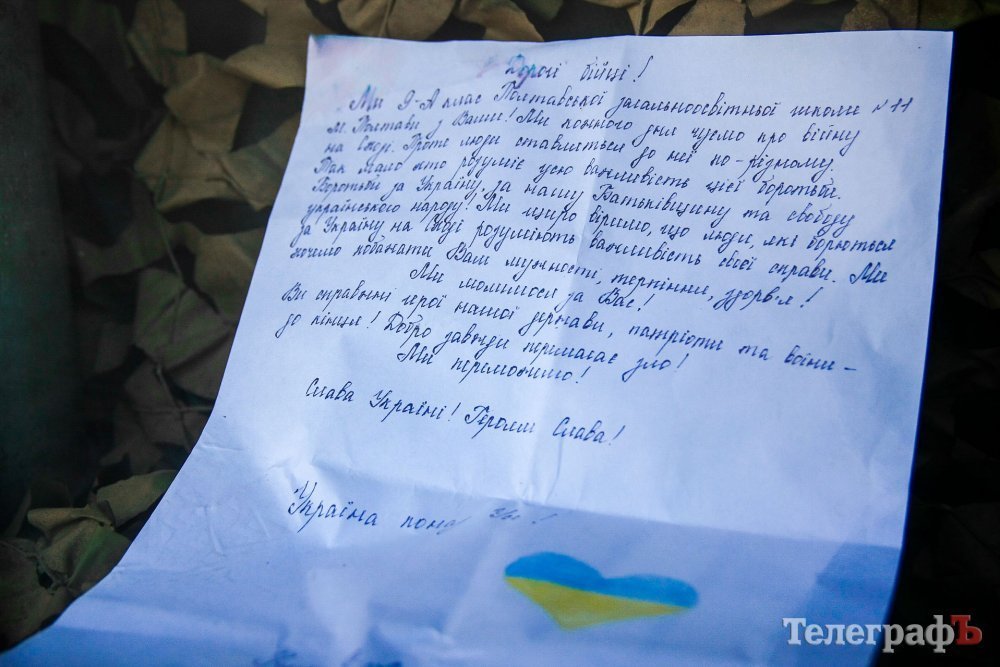 Дорогі бійці!
Ми 9-А клас Полтавської загальноосвітньої школи №11
м. Полтави з Вами! Ми кожного дня чуємо про війну
на Сході. Проте люди ставляться до неї по-різному.
Так мало хто розуміє усю важливість цієї боротьби.
Боротьби за Україну, за нашу Батьківщину та свободу
українського народу! Ми щиро віримо, що люди, які борються
за Україну на Сході розуміють важливість своєї справи. Ми
хочемо побажати Вам мужності, терпіння, здоров'я!
Ми молимося за Вас!
Ви справжні герої нашої держави, патріоти та воїни –
до кінця! Добро завжди перемагає зло!
Ми переможемо!
Слава Україні! Героям Слава!
Україна
ТелеграфЪ